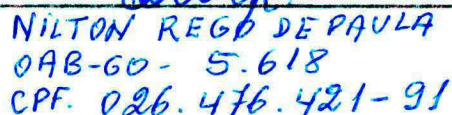 NILTON REGO DE PAULA
OAB-GO - 5.618
CPF. 026.476.421-91